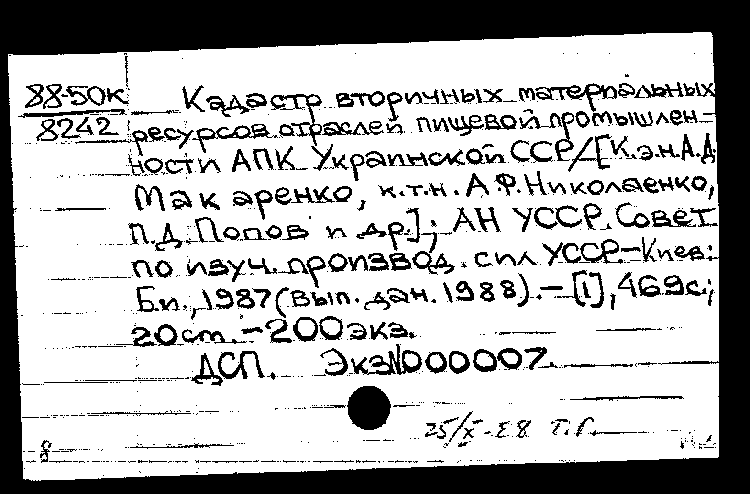 88-50к
8242
Кадастр вторичных материальных
ресурсов отраслей пищевой промышлен-
ности АПК Украинской ССР/[К.э.н.А.Д.
Макаренко, к.т.н. А.Ф.Николаенко,
П.Д. Попов и др.]; АН УССР. Совет
по изуч. производ. сил УССР.-Киев:
Б.и., 1987(вып. дан. 1988).-[1], 469с.;
20см.-200экз.
ДСП. Экз№000007.
25/X-88 Т.Г.